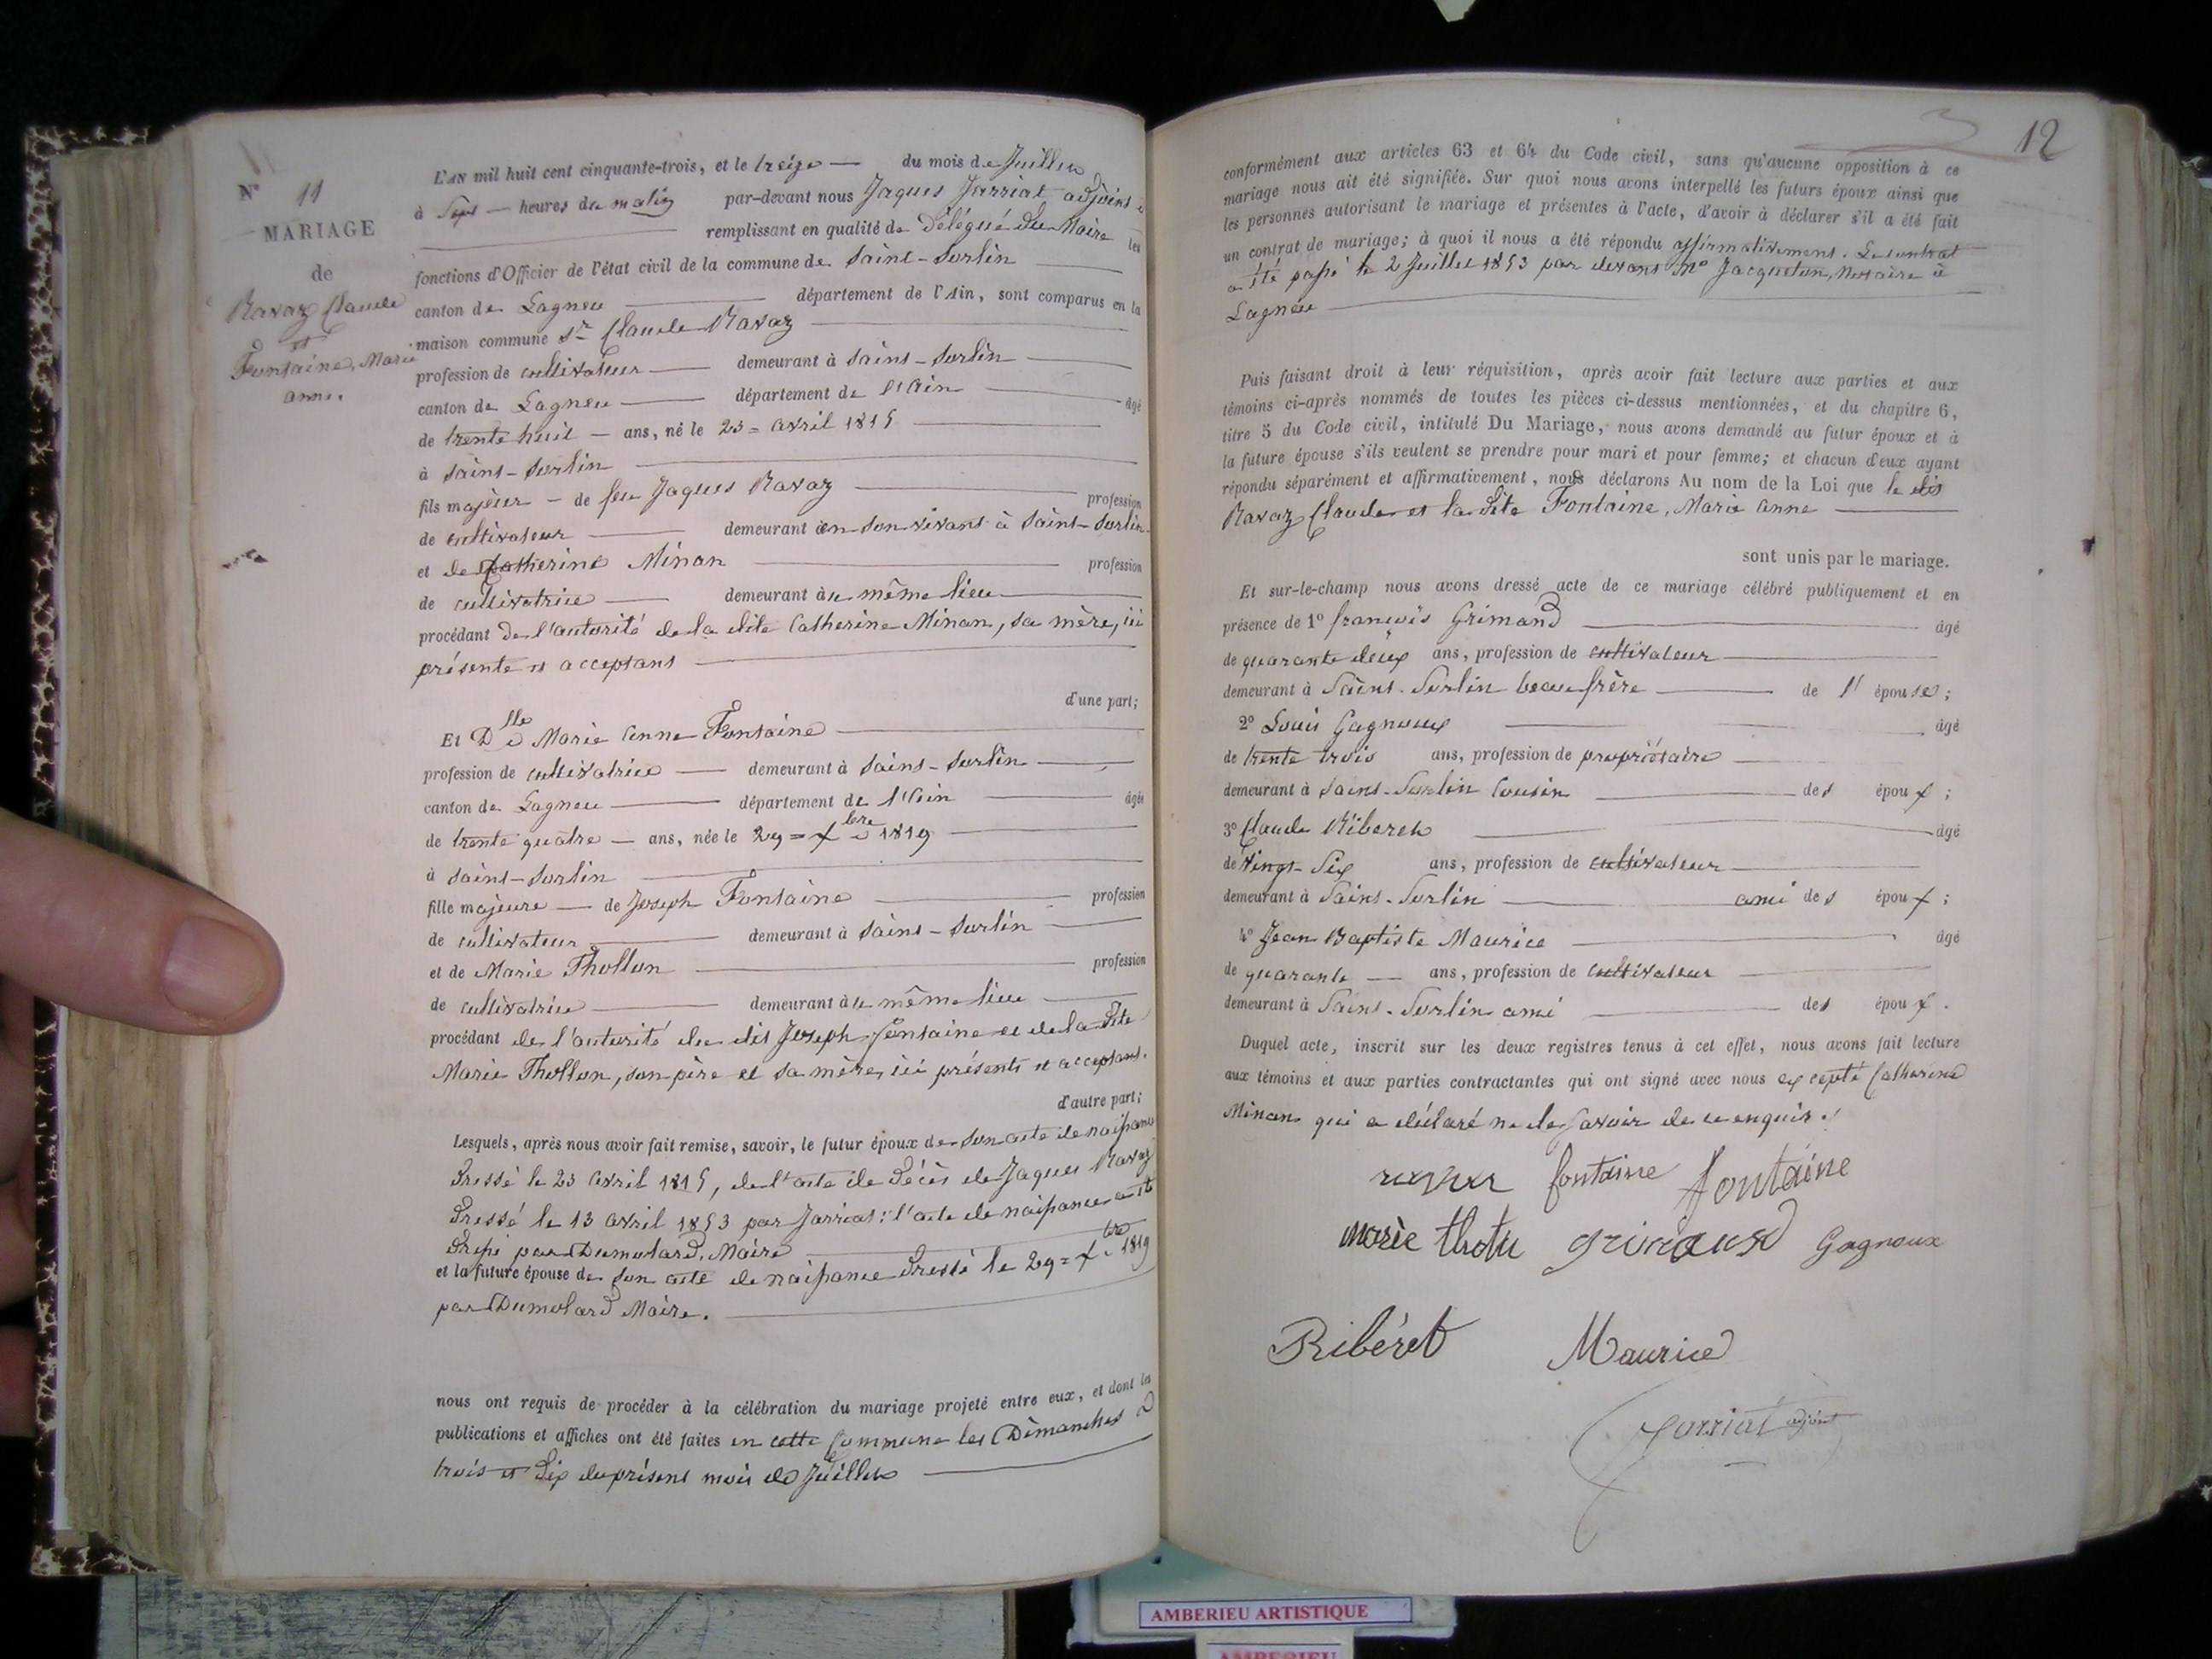 N° 11
MARIAGE
de
Ravaz Claude
et
Fontaine, Marie
anne.
L'AN mil huit cent cinquante-trois, et le treize du mois de Juillet
à Sept heures du matin par-devant nous Jaques Jarriat adjoint
remplissant en qualité de Délégué du Maire les
fonctions d'Officier de l'état civil de la commune de Saint-Sorlin
canton de Lagneu département de l'Ain, sont comparus en la
maison commune Sr Claude Ravaz
profession de cultivateur demeurant à Saint-Sorlin
canton de Lagneu département de l'Ain âgé
de trente huit ans, né le 23 = avril 1815
à Saint-Sorlin
fils majeur de feu Jaques Ravaz profession
de cultivateur demeurant en son vivant à Saint-Sorlin
et de Catherine Minan profession
de cultivatrice demeurant au même lieu
procédant de l'autorité de la dite Catherine Minan, sa mère, ici
présente et acceptant
d'une part;
Et Dlle Marie anne Fontaine
profession de cultivatrice demeurant à Saint-Sorlin
canton de Lagneu département de l'Ain âgée
de trente quatre ans, née le 29 = Xbre 1819
à Saint-Sorlin
fille majeure de Joseph Fontaine profession
de cultivateur demeurant à Saint-Sorlin
et de Marie Thollon profession
de cultivatrice demeurant au même lieu
procédant de l'autorité du dit Joseph Fontaine et de la dite
Marie Thollon, son père et sa mère, ici présents et acceptant.
d'autre part;
Lesquels, après nous avoir fait remise, savoir, le futur époux de son acte de naissance
Dressé le 23 avril 1815, de l'acte de Décès de Jaques Ravaz
Dressé le 13 avril 1853 par Jarriat: l'acte de naissance a été
Dressé par Dumolard, Maire
et la future épouse de son acte de naissance Dressé le 29 = Xbre 1819
par Dumolard Maire.
nous ont requis de procéder à la célébration du mariage projeté entre eux, et dont les
publications et affiches ont été faites en cette Commune les Dimanches
trois et dix du présent mois de Juillet
12
conformément aux articles 63 et 64 du Code civil, sans qu'aucune opposition à ce
mariage nous ait été signifiée. Sur quoi nous avons interpellé les futurs époux ainsi que
les personnes autorisant le mariage et présentes à l'acte, d'avoir à déclarer s'il a été fait
un contrat de mariage; à quoi il nous a été répondu affirmativement. Le contrat
a été passé le 2 Juillet 1853 par devant Me Jacquetan, Notaire à
Lagneu
Puis faisant droit à leur réquisition, après avoir fait lecture aux parties et aux
témoins ci-après nommés de toutes les pièces ci-dessus mentionnées, et du chapitre 6,
titre 5 du Code civil, intitulé Du Mariage, nous avons demandé au futur époux et à
la future épouse s'ils veulent se prendre pour mari et pour femme; et chacun d'eux ayant
répondu séparément et affirmativement, nous déclarons Au nom de la Loi que le dit
Ravaz Claude et la dite Fontaine, Marie anne
sont unis par le mariage.
Et sur-le-champ nous avons dressé acte de ce mariage célébré publiquement et en
présence de 1° françois Grimand âgé
de quarante deux ans, profession de cultivateur
demeurant à Saint-Sorlin beau frère de l' épouse;
2° Louis Gagnoux âgé
de trente trois ans, profession de propriétaire
demeurant à Saint-Sorlin Cousin des époux;
3° Claude Riberet âgé
de Vingt-Six ans, profession de cultivateur
demeurant à Saint-Sorlin ami des époux;
4° Jean Baptiste Maurice âgé
de quarante ans, profession de cultivateur
demeurant à Saint-Sorlin ami des époux.
Duquel acte, inscrit sur les deux registres tenus à cet effet, nous avons fait lecture
aux témoins et aux parties contractantes qui ont signé avec nous excepté Catherine
Minan qui a déclaré ne le Savoir de ce enquis.
fontaine fontaine
marie Gagnoux
Ribéret Maurice
Jarriat adjoint
AMBERIEU ARTISTIQUE
AMBERIEU